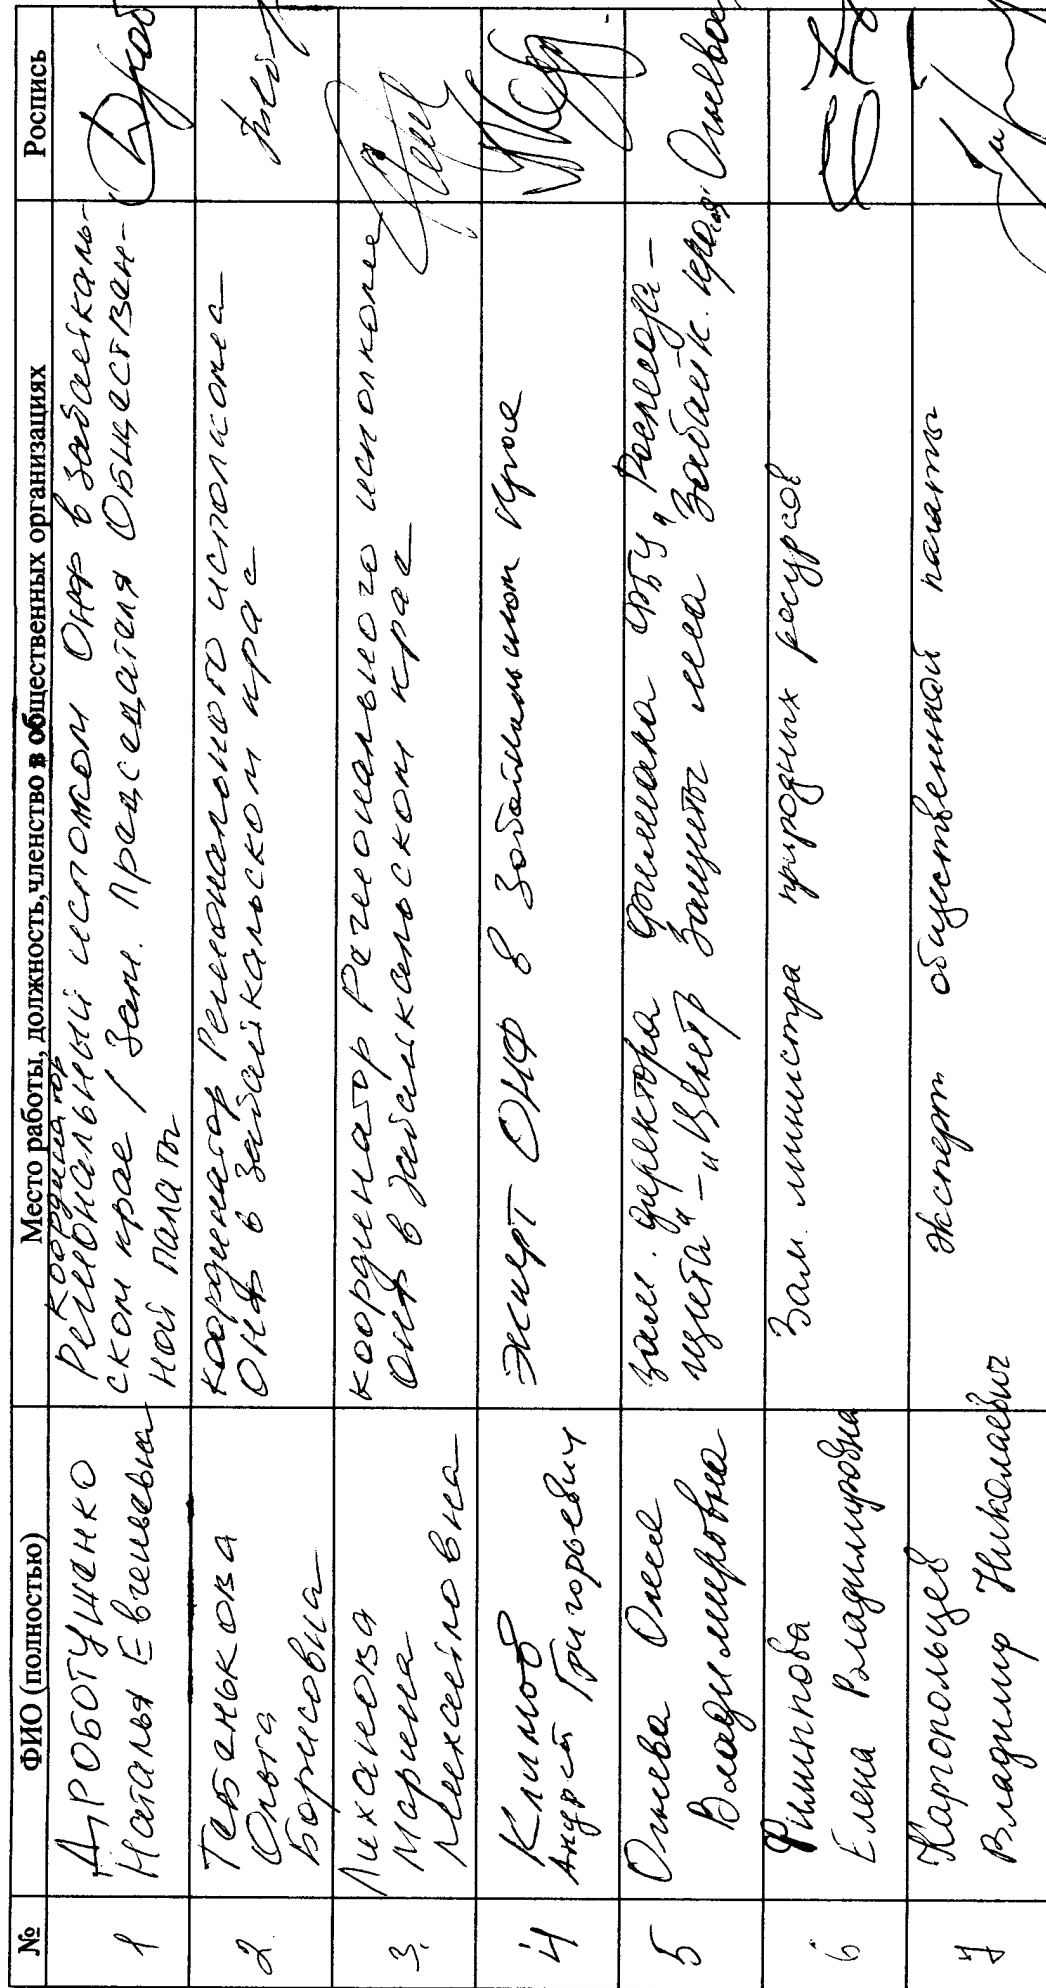 № ФИО (полностью) Место работы, должность, членство в общественных организациях Роспись
1
ДРОБОТУШЕНКО
Наталья Евгеньевна
Координатор
Региональный исполком ОНФ в Забайкаль-
ском крае / Зам. Председателя Обществен-
ной палаты
2.
Тебенькова
Ольга
Борисовна
координатор Регионального исполкома
ОНФ в Забайкальском крае
3.
Лиханова
Марина
Михайловна
координатор Регионального исполкома
ОНФ в Забайкальском крае
4
Климов
Андрей Григорьевич
Эксперт ОНФ в Забайкальском крае
5
Олеся
Владимировна
зам. директора филиала ФБУ "Рослесоза-
щита" - "Центр Защиты леса Забайк. края"
6
Филиппова
Елена Владимировна
Зам. министра природных ресурсов
7
Каргопольцев
Владимир Николаевич
Эксперт общественной палаты